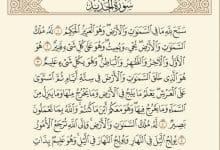 سُورَةُ الْحَدِيدِ
سَبَّحَ لِلَّهِ مَا فِي السَّمَوَاتِ وَالْأَرْضِ وَهُوَ الْعَزِيزُ الْحَكِيمُ ١ لَهُ مُلْكُ
السَّمَوَاتِ وَالْأَرْضِ يُحْيِي وَيُمِيتُ وَهُوَ عَلَى كُلِّ شَيْءٍ قَدِيرٌ ٢ هُوَ
الْأَوَّلُ وَالْآخِرُ وَالظَّاهِرُ وَالْبَاطِنُ وَهُوَ بِكُلِّ شَيْءٍ عَلِيمٌ ٣ هُوَ الَّذِي
خَلَقَ السَّمَوَاتِ وَالْأَرْضَ فِي سِتَّةِ أَيَّامٍ ثُمَّ اسْتَوَى عَلَى الْعَرْشِ
يَعْلَمُ مَا يَلِجُ فِي الْأَرْضِ وَمَا يَخْرُجُ مِنْهَا وَمَا يَنْزِلُ مِنَ السَّمَاءِ وَمَا
يَعْرُجُ فِيهَا وَهُوَ مَعَكُمْ أَيْنَ مَا كُنْتُمْ وَاللَّهُ بِمَا تَعْمَلُونَ
بَصِيرٌ ٤ لَهُ مُلْكُ السَّمَوَاتِ وَالْأَرْضِ وَإِلَى اللَّهِ تُرْجَعُ الْأُمُورُ
٥ يُولِجُ اللَّيْلَ فِي النَّهَارِ وَيُولِجُ النَّهَارَ فِي اللَّيْلِ وَهُوَ